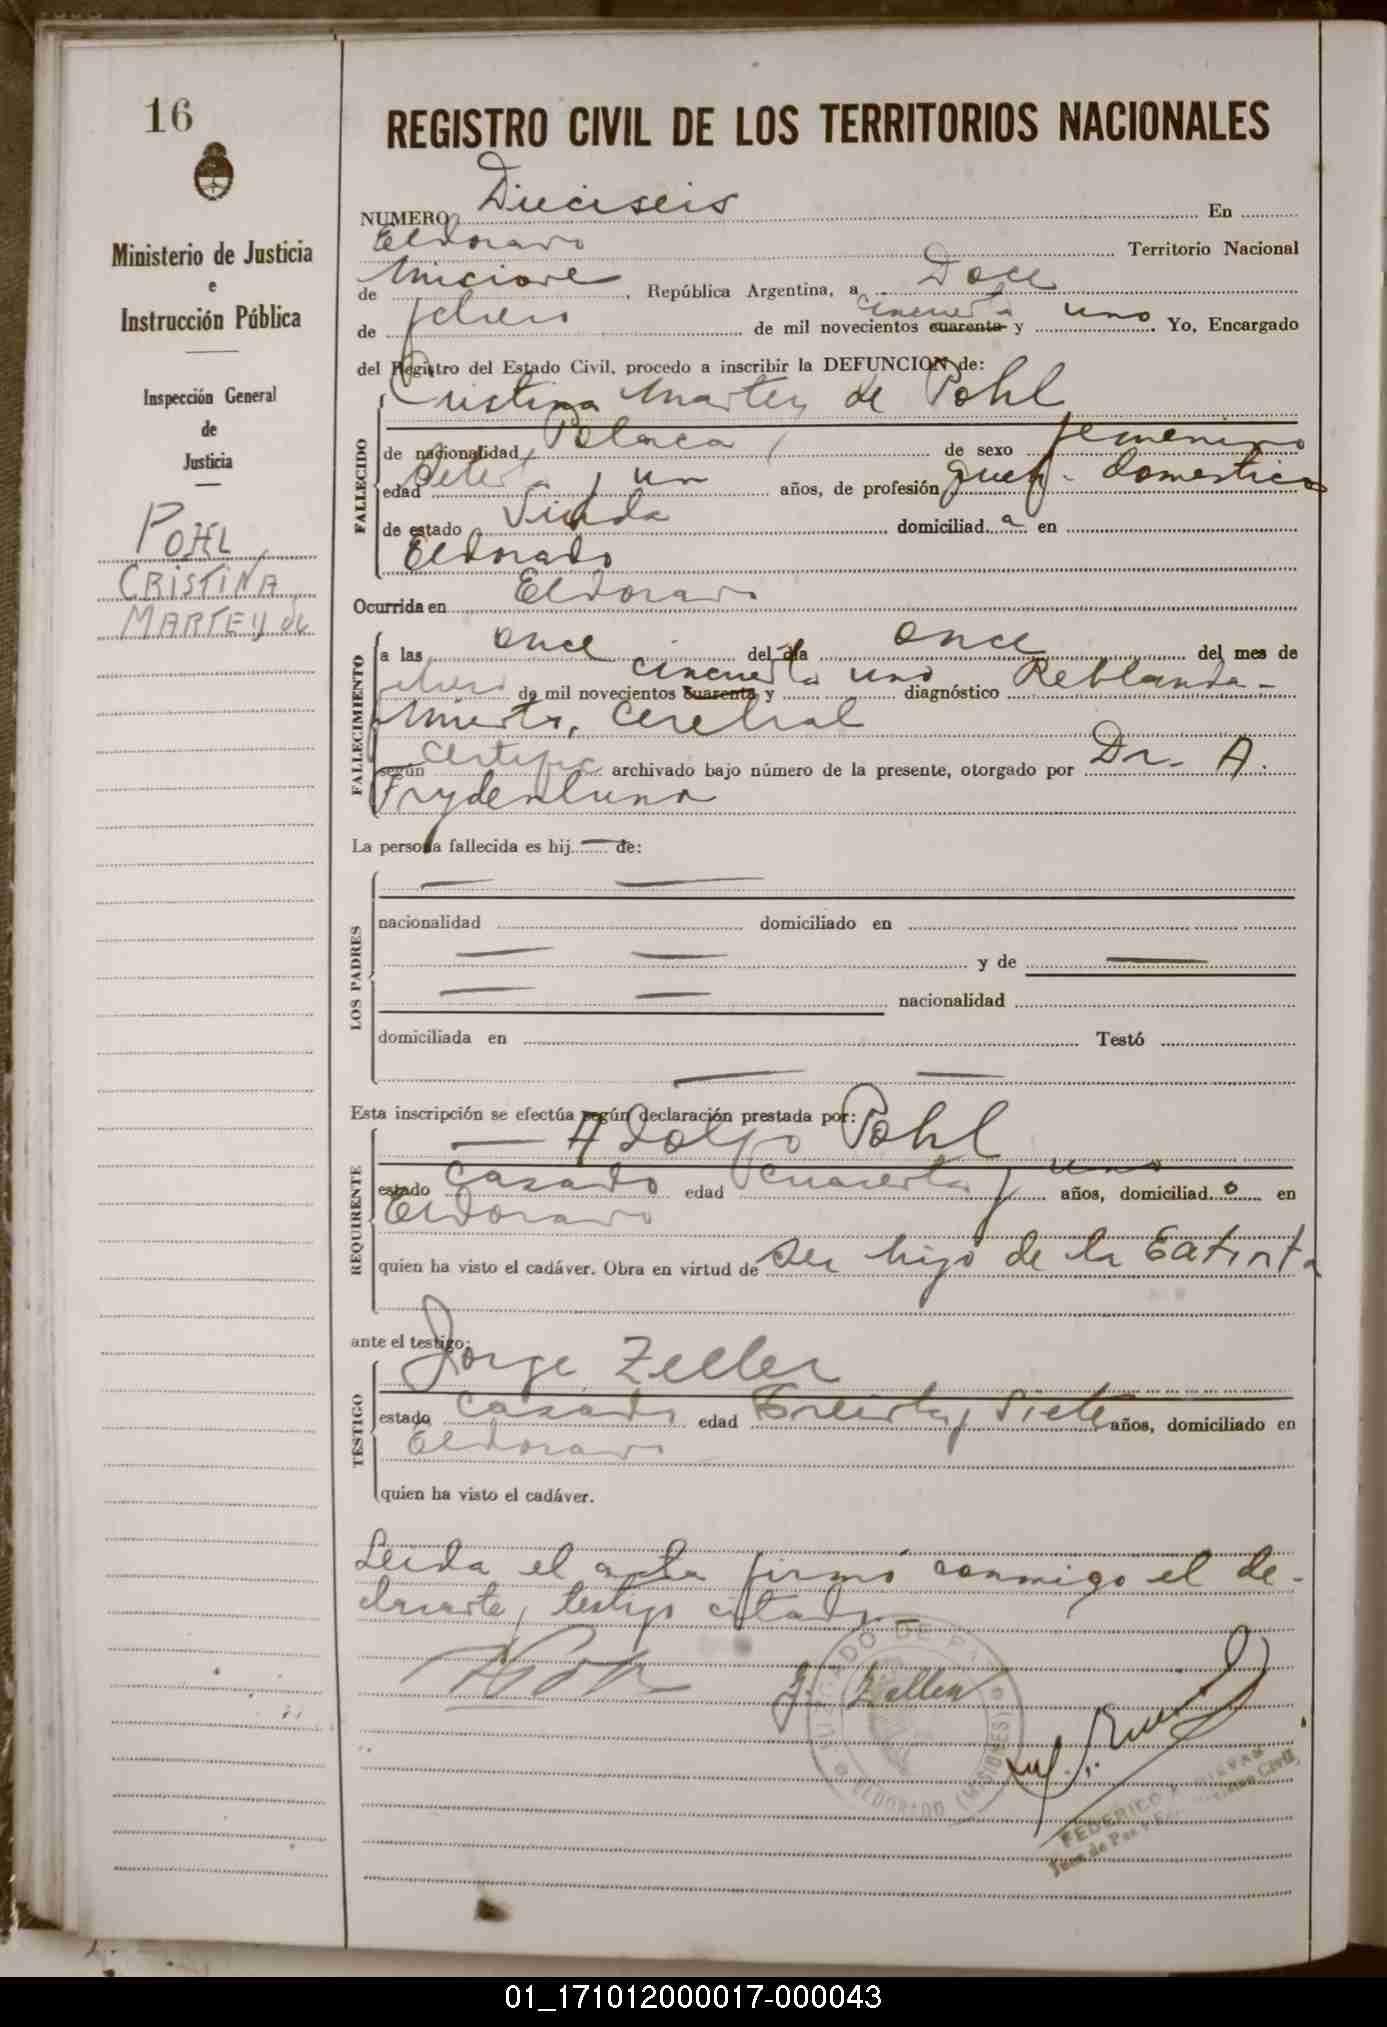 16
Ministerio de Justicia
e
Instrucción Pública
Inspección General
de
Justicia
POHL,
CRISTINA
MARTEY de
REGISTRO CIVIL DE LOS TERRITORIOS NACIONALES
NUMERO Dieciseis En
Eldorado Territorio Nacional
de Misiones, República Argentina, a Doce
de febrero de mil novecientos cuarenta cincuenta y uno Yo, Encargado
del Registro del Estado Civil, procedo a inscribir la DEFUNCION de:
Cristina Martey de Pohl
FALLECIDO
de nacionalidad Polaca de sexo femenino
edad setenta y un años, de profesión queh. domesticos
de estado Viuda domiciliad a en
Eldorado
Ocurrida en Eldorado
FALLECIMIENTO
a las once del día once del mes de
febrero de mil novecientos cuarenta cincuenta y uno diagnóstico Reblande-
miento, cerebral
según certific archivado bajo número de la presente, otorgado por Dr. A.
Frydenlund
La persona fallecida es hij — de:
LOS PADRES
— —
nacionalidad domiciliado en
— — y de —
— — nacionalidad
domiciliada en Testó
— —
Esta inscripción se efectúa según declaración prestada por:
REQUIRENTE
— Adolfo Pohl
estado casado edad cuarenta y uno años, domiciliad o en
Eldorado
quien ha visto el cadáver. Obra en virtud de ser hijo de la Extinta
ante el testigo:
TESTIGO
Jorge Zeller
estado casado edad treinta y siete años, domiciliado en
Eldorado
quien ha visto el cadáver.
Leida el acta firmó conmigo el de-
clarante y testigo citado.—
J. Zeller
JUZGADO DE PAZ
ELDORADO (MISIONES)
FEDERICO
Juez de Paz Civil
01_171012000017-000043